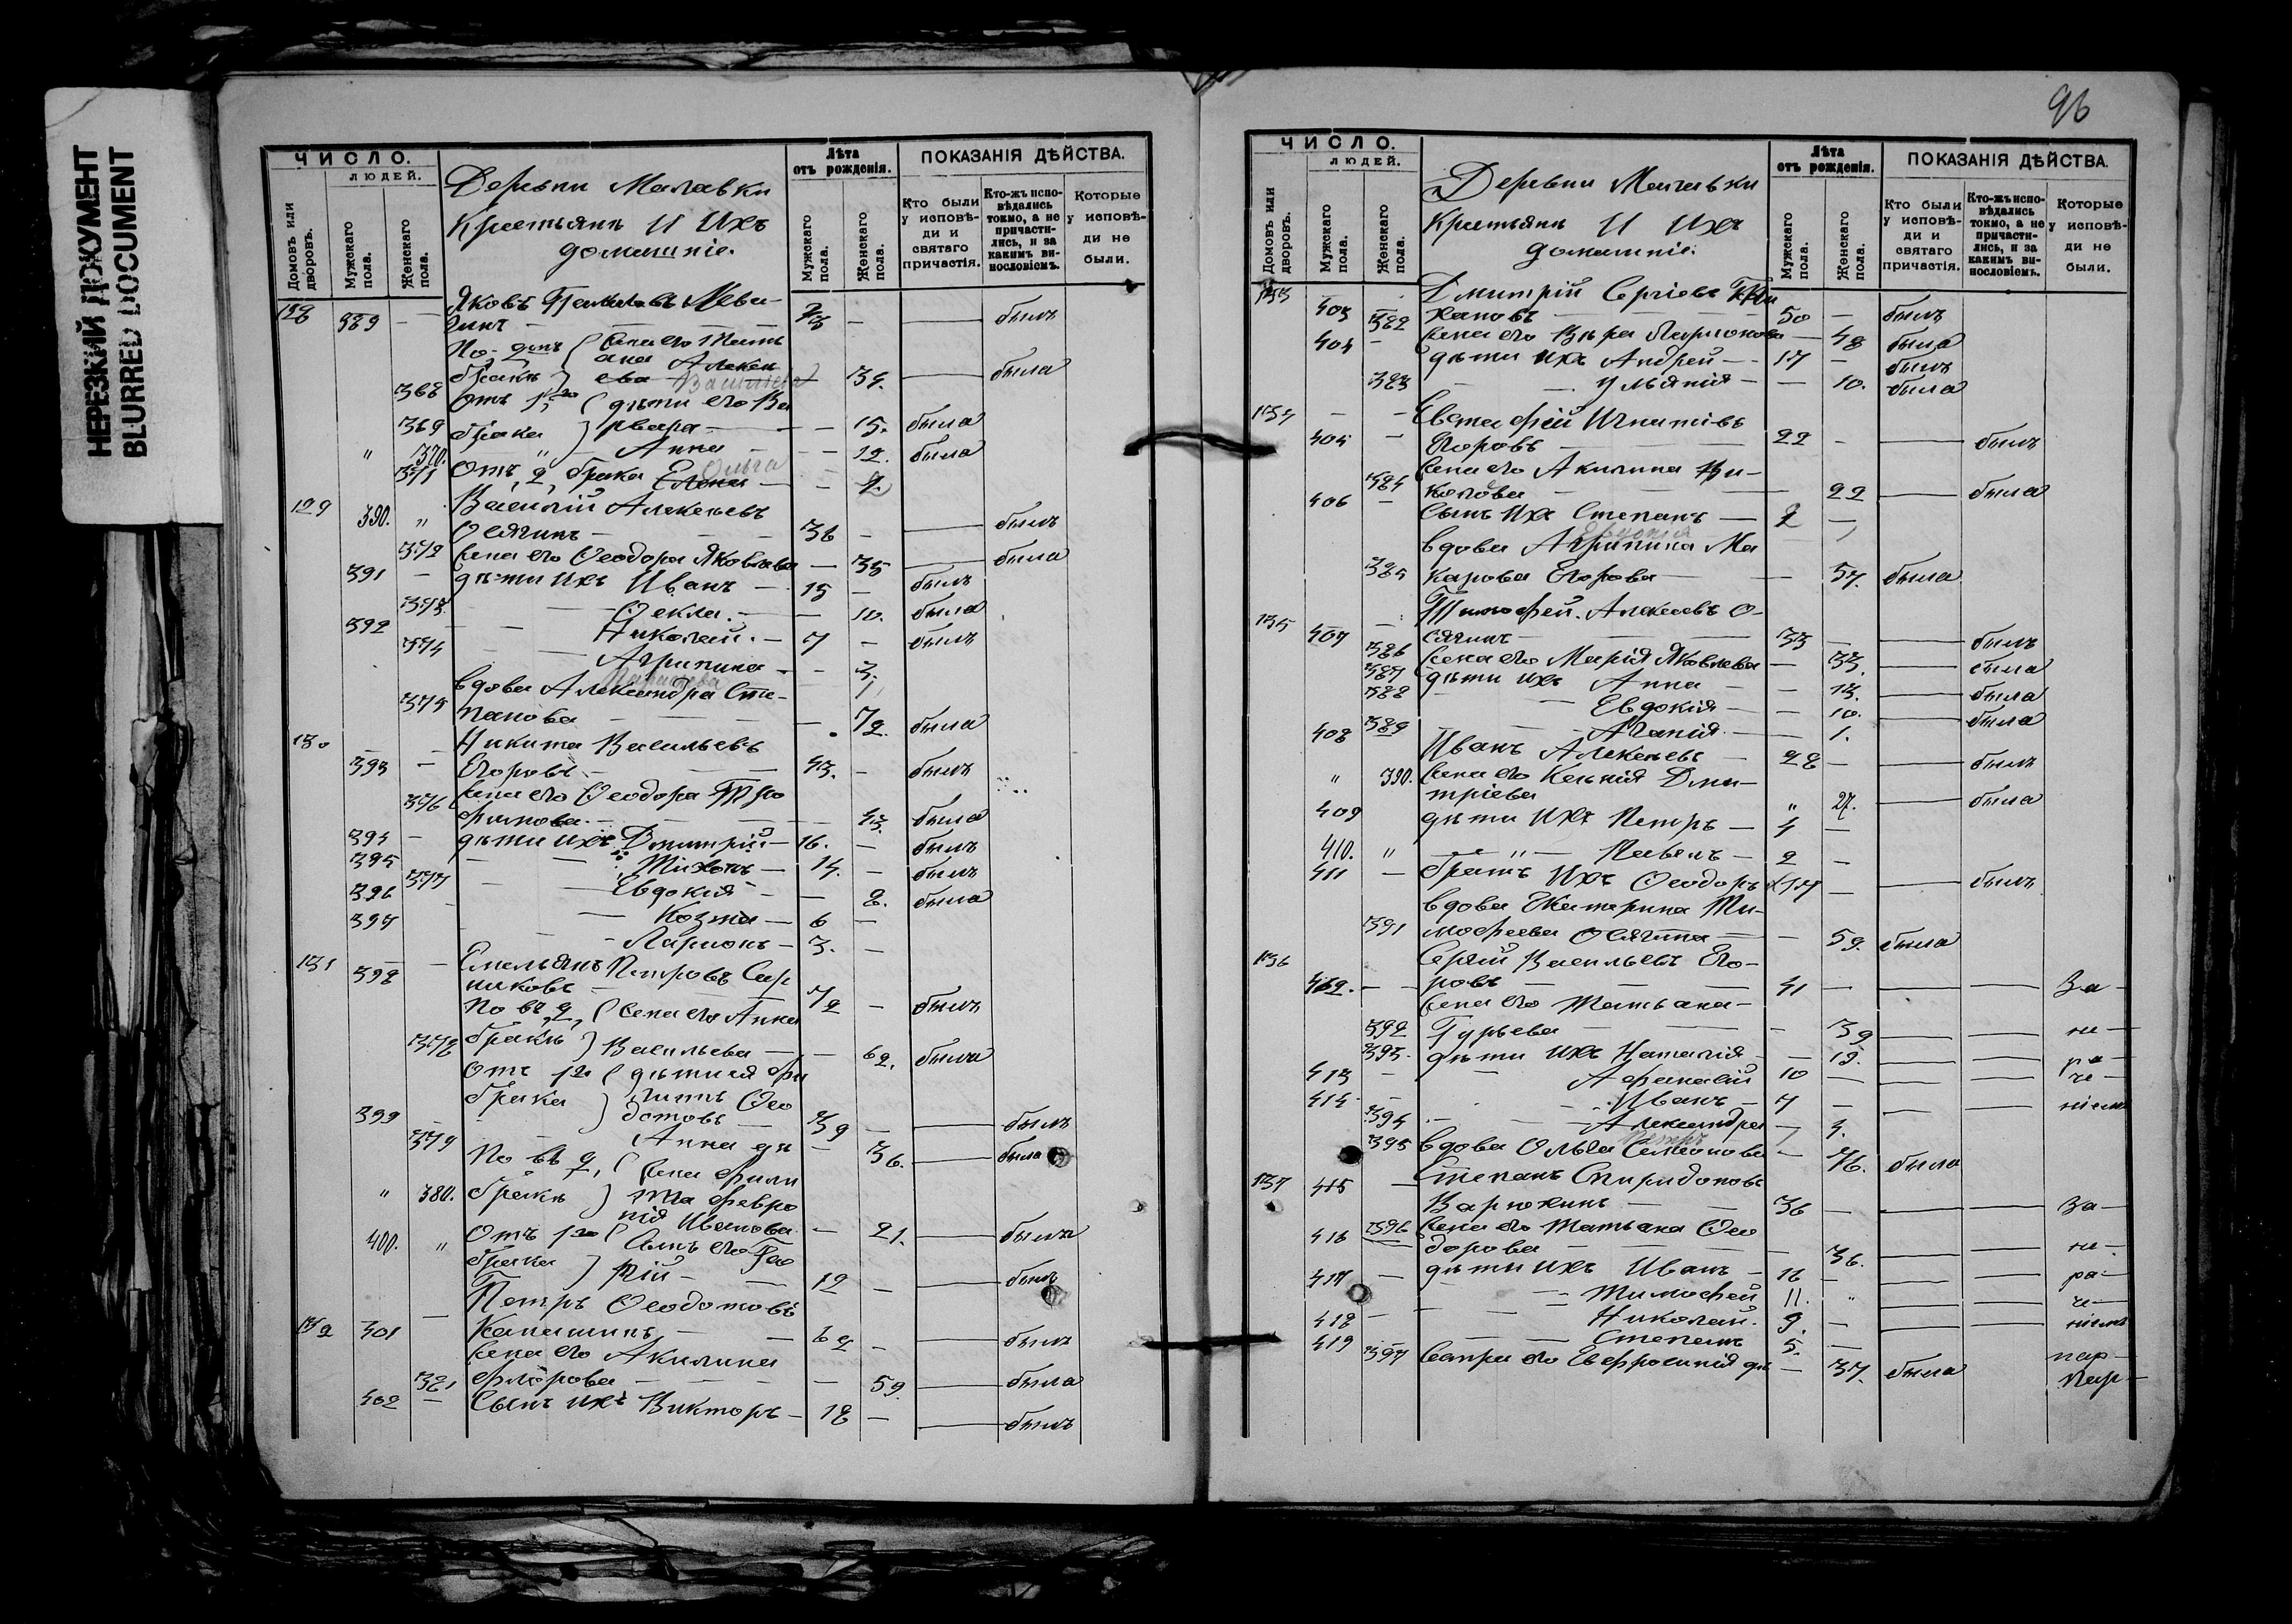 НЕРЕЗКИЙ ДОКУМЕНТ
BLURRED DOCUMENT
ЧИСЛО.
ЛЮДЕЙ.
Домовъ или дворовъ.
Мужскаго пола.
Женскаго пола.
Деревни Малавки
Крестьянъ И Ихъ
домашніе.
Лѣта отъ рожденія.
Мужскаго пола.
Женскаго пола.
ПОКАЗАНІЯ ДѢЙСТВА.
Кто были у исповѣди и святаго причастія.
Кто-жъ исповѣдались токмо, а не причастились, и за какимъ винословіемъ.
Которые у исповѣди не были.
128 389 — Яковъ
— былъ
По
бракѣ } Алексѣ
368 ева Васильева — 34. — была
Отъ 1го ( дѣти его Ва
369 брака } рвара — — 15. была
" 370. " Анна — — 12. была
371 Отъ 2, брака Ольга —
129 390. " Василій Алексѣевъ
Осягинъ — 36 — — былъ
372 жена его Ѳеодора Яковлева — 35 — была
391 — дѣти ихъ Иванъ — 15 — былъ
373 — Ѳекла — — 10. была
392 — Николай. — 7 — былъ
374 — Агрипина — — 3.
вдова Александра Сте-
375 панова — — 72. была
130 — Никита Васильевъ
393 — Егоровъ — 43. — былъ
жена его Ѳеодора Тро
376 фимова. — 43. была
394 — дѣти ихъ Димитрій — 16. — былъ
395 — Тихонъ — 14. — былъ
377 — Евдокія — — 8. была
396 — Козма — 6 —
397 — Ларіонъ — 3. —
131 398 — Емельянъ Петровъ Сар
никовъ — 72 — былъ
По въ 2, ( жена его Анна
378 бракѣ } Васильева — — 62. была
Отъ 1го ( дѣти ея Фи
брака } липпъ Ѳео
399 — дотовъ — 39 — — былъ
379 — Анна дѣ — 36. — была
По въ 2, ( жена Фили
" 380. бракѣ } ппа Февро
нія Иванова — 21. — была
400. " Отъ 1го ( сынъ его Гео
брака } ргій — 12 — — былъ
Петръ Ѳеодотовъ
132 401 Капишинъ — 62 — — былъ
жена его Акилина
381 Флорова — — 59. — была
402 — сынъ ихъ Викторъ — 18 — — былъ
96
ЧИСЛО.
ЛЮДЕЙ.
Домовъ или дворовъ.
Мужскаго пола.
Женскаго пола.
Деревни Малавки
Крестьянъ И Ихъ
домашніе.
Лѣта отъ рожденія.
Мужскаго пола.
Женскаго пола.
ПОКАЗАНІЯ ДѢЙСТВА.
Кто были у исповѣди и святаго причастія.
Кто-жъ исповѣдались токмо, а не причастились, и за какимъ винословіемъ.
Которые у исповѣди не были.
133 — Дмитрій Сергіевъ
403 хановъ — 50 — былъ
382 жена его Вѣра Ларіонова — 48 была
404 — дѣти ихъ Андрей — 17 — былъ
383 — Ульянія — — 10. была
134 — — Евстафій Игнатіевъ
405 — Егоровъ — 22 — — былъ
жена его Акилина Ни-
384 колова — 22 — была
406 — сынъ ихъ Степанъ — 2 —
вдова Агрипина Ма
385 карова Егорова — — 57. была
135 — Тимофей. Алексѣевъ О-
407 сягинъ — 33 — — былъ
386 жена его Марія Яковлева — 33. — была
387 дѣти ихъ Анна — — 13. — была
388 — Евдокія — — 10. — была
389 — Агапія — — 1.
408 Иванъ Алексѣевъ — 28 — — былъ
" 390. жена его Ксенія Дми-
тріева " 27. — была
409 дѣти ихъ Петръ — 4 —
410. " — " — Павелъ — 2 —
411 — братъ ихъ Ѳеодоръ 17 — — былъ
вдова Екатерина Ти-
391 мофеева Осягина — — 59. была
136 Сергій Васильевъ Его-
412. — ровъ — 41 — — — За -
жена его Татьяна —
392 Гурьева — — 39 — — не —
393. дѣти ихъ Наталія — — 12. — — ра —
413 — Афанасій 10 — — — че —
414 — Иванъ — 7 — — — ніемъ
394 — Александра — 4.
395 вдова Ольга Семионова — 76. была
137 415 — Степанъ Спиридоновъ
Варюхинъ — 36 — — — За —
396 жена его Татьяна Ѳео
дорова — — 36. — — не —
416 — дѣти ихъ Иванъ — 16 — — — ра —
417 — Тимофей 11. " — — че —
418 — Николай. 9. — — — ніемъ
419 — Степанъ 5. —
397 сестра его Евфросинія дѣ — 37. была